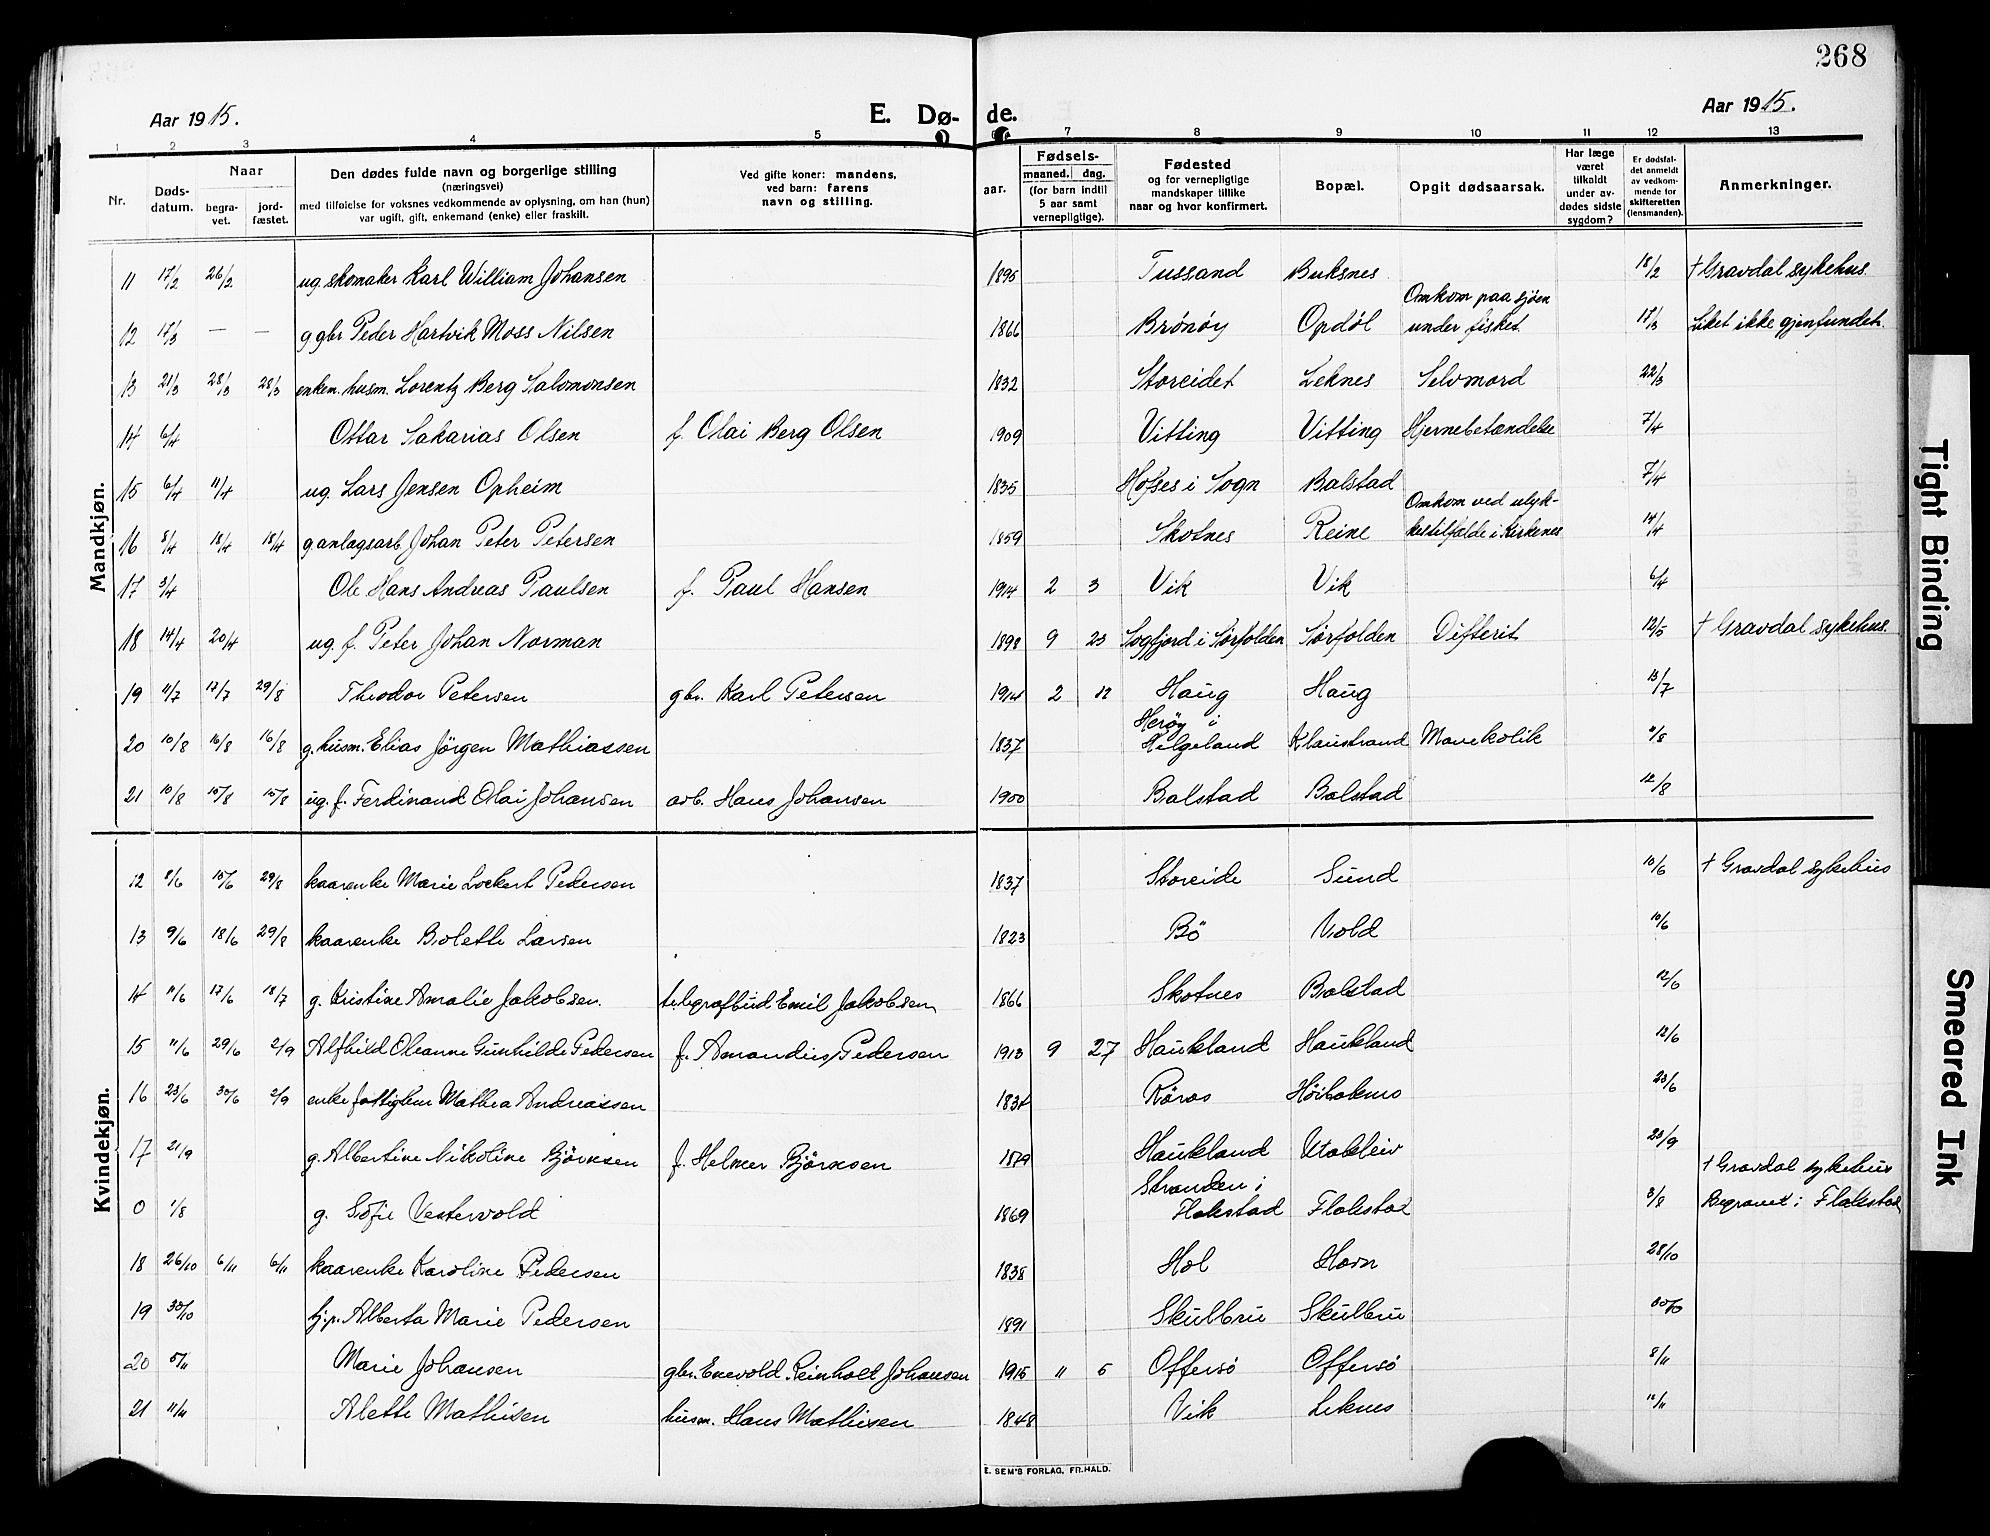 268
Aar 1915. E. Dø- de. Aar 1915.
1 2 3 4 5 7 8 9 10 11 12 13
Nr. Døds-datum. Naar begra-vet. jord-fæstet. Den dødes fulde navn og borgerlige stilling (næringsvei) med tilføielse for voksnes vedkommende av oplysning, om han (hun) var ugift, gift, enkemand (enke) eller fraskilt. Ved gifte koner: mandens, ved barn: farens navn og stilling. aar. Fødsels- maaned. dag. (for barn indtil 5 aar samt vernepligtige). Fødested og for vernepligtige mandskaper tillike naar og hvor konfirmert. Bopæl. Opgit dødsaarsak. Har læge været tilkaldt under av-dødes sidste sygdom? Er dødsfal-det anmeldt av vedkom-mende for skifteretten (lensmanden). Anmerkninger.
Mandkjøn.
11 17/2 26/2 ug. skomaker Karl William Johansen 1895 Tussand Buksnes 18/2 † Gravdal sykehus.
12 17/3 — — g gbr Peder Hartvik Moss Nilsen 1866 Brønøy Opdøl Omkom paa sjøen under fisket. 17/3 Liket ikke gjenfundet.
13 21/3 28/3 28/3 enkem. husm. Lorentz Berg Salomonsen 1832 Storeidet Leknes Selvmord 22/3
14 6/4 Ottar Sakarias Olsen f. Olai Berg Olsen 1909 Vitting Vitting Hjernebetændelse 7/4
15 6/4 11/4 ug. Lars Jensen Opheim 1835 Hofses i Sogn Balstad 7/4
16 8/4 18/4 18/4 g anlægsarb. Johan Peter Petersen 1859 Skotnes Reine Omkom ved ulyk-kestilfælde i Kirkenes 14/4
17 3/4 Ole Hans Andreas Paulsen f. Paul Hansen 1914 2 3 Vik Vik 6/4
18 14/4 20/4 ug. f. Peter Johan Norman 1898 9 23 Sogfjord i Sørfolden Sørfolden Difterit 12/5 † Gravdal sykehus.
19 11/7 17/7 29/8 Theodor Petersen gbr. Karl Petersen 1914 2 12 Haug Haug 13/7
20 10/8 16/8 16/8 g. husm. Elias Jørgen Mathiassen 1837 Herøy i Helgeland Klaustrand Mavekolik 11/8
21 10/8 15/8 15/8 ug. f. Ferdinand Olai Johansen arb. Hans Johansen 1900 Balstad Balstad 12/8
Kvindekjøn.
12 8/6 15/6 29/8 kaarenke Marie Lockert Pedersen 1837 Storeide Sund 10/6 † Gravdal sykehus
13 9/6 18/6 29/8 kaarenke Bolette Larsen 1823 Bö Vold 10/6
14 11/6 17/6 18/7 g. Kristine Amalie Jakobsen. telegrafbud Emil Jakobsen 1866 Skotnes Balstad 12/6
15 11/6 29/6 2/9 Alfhild Oleanne Gunhilde Pedersen f. Amandus Pedersen 1913 9 27 Haukland Haukland 12/6
16 23/6 30/6 2/9 enke fattiglem Mathea Andreassen 1834 Røros 23/6
17 21/9 g. Albertine Nikoline Bjørnsen f. Helmer Bjørnsen 1879 Haukland Utakleiv 23/9
0 1/8 g. Sofie Vestervold 1869 Stranden i Flakstad Flakstad 3/8 † Gravdal sykehus Begravet i Flakstad
18 26/10 6/11 6/11 kaarenke Karoline Pedersen 1838 Hol Havn 28/10
19 30/10 hj.p. Alberta Marie Pedersen 1891 Skulbru Skulbru 30/10
20 5/11 Marie Johansen gbr. Enevold Reinholt Johansen 1915 11 5 Offersö Offersö 8/11
21 11/11 Alette Mathisen husm. Hans Mathisen 1848 Vik Leknes 12/11
E. SEM'S FORLAG, FR.HALD.
Tight Binding
Smeared Ink